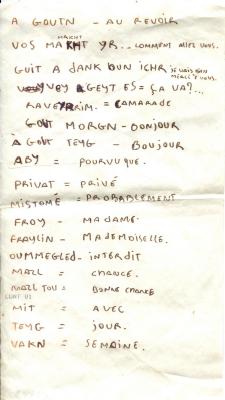 A GOUTN - AU REVOIR
MACHT
VOS MAKHT YR... COMMENT ALLEZ VOUS.
GUIT A DANK DUN ICHR JE VAIS BIEN MERCI & VOUS
VEY AGEYT ES = ÇA VA?...
= CAMARADE
GOUT MORGN - BONJOUR
A GOUT TEYG - BOUJOUR
ABY = POURVU QUE.
PRIVAT = PRIVÉ
MISTOMÉ = PROBABLEMENT
FROY - MADAME.
FRAYLIN - MADEMOISELLE.
OUMMEGLED - INTERDIT
MAZL = CHANCE.
MAZL TOV = BONNE CHANCE
MIT = AVEC
TEYG = JOUR.
VAKN = SEMAINE.